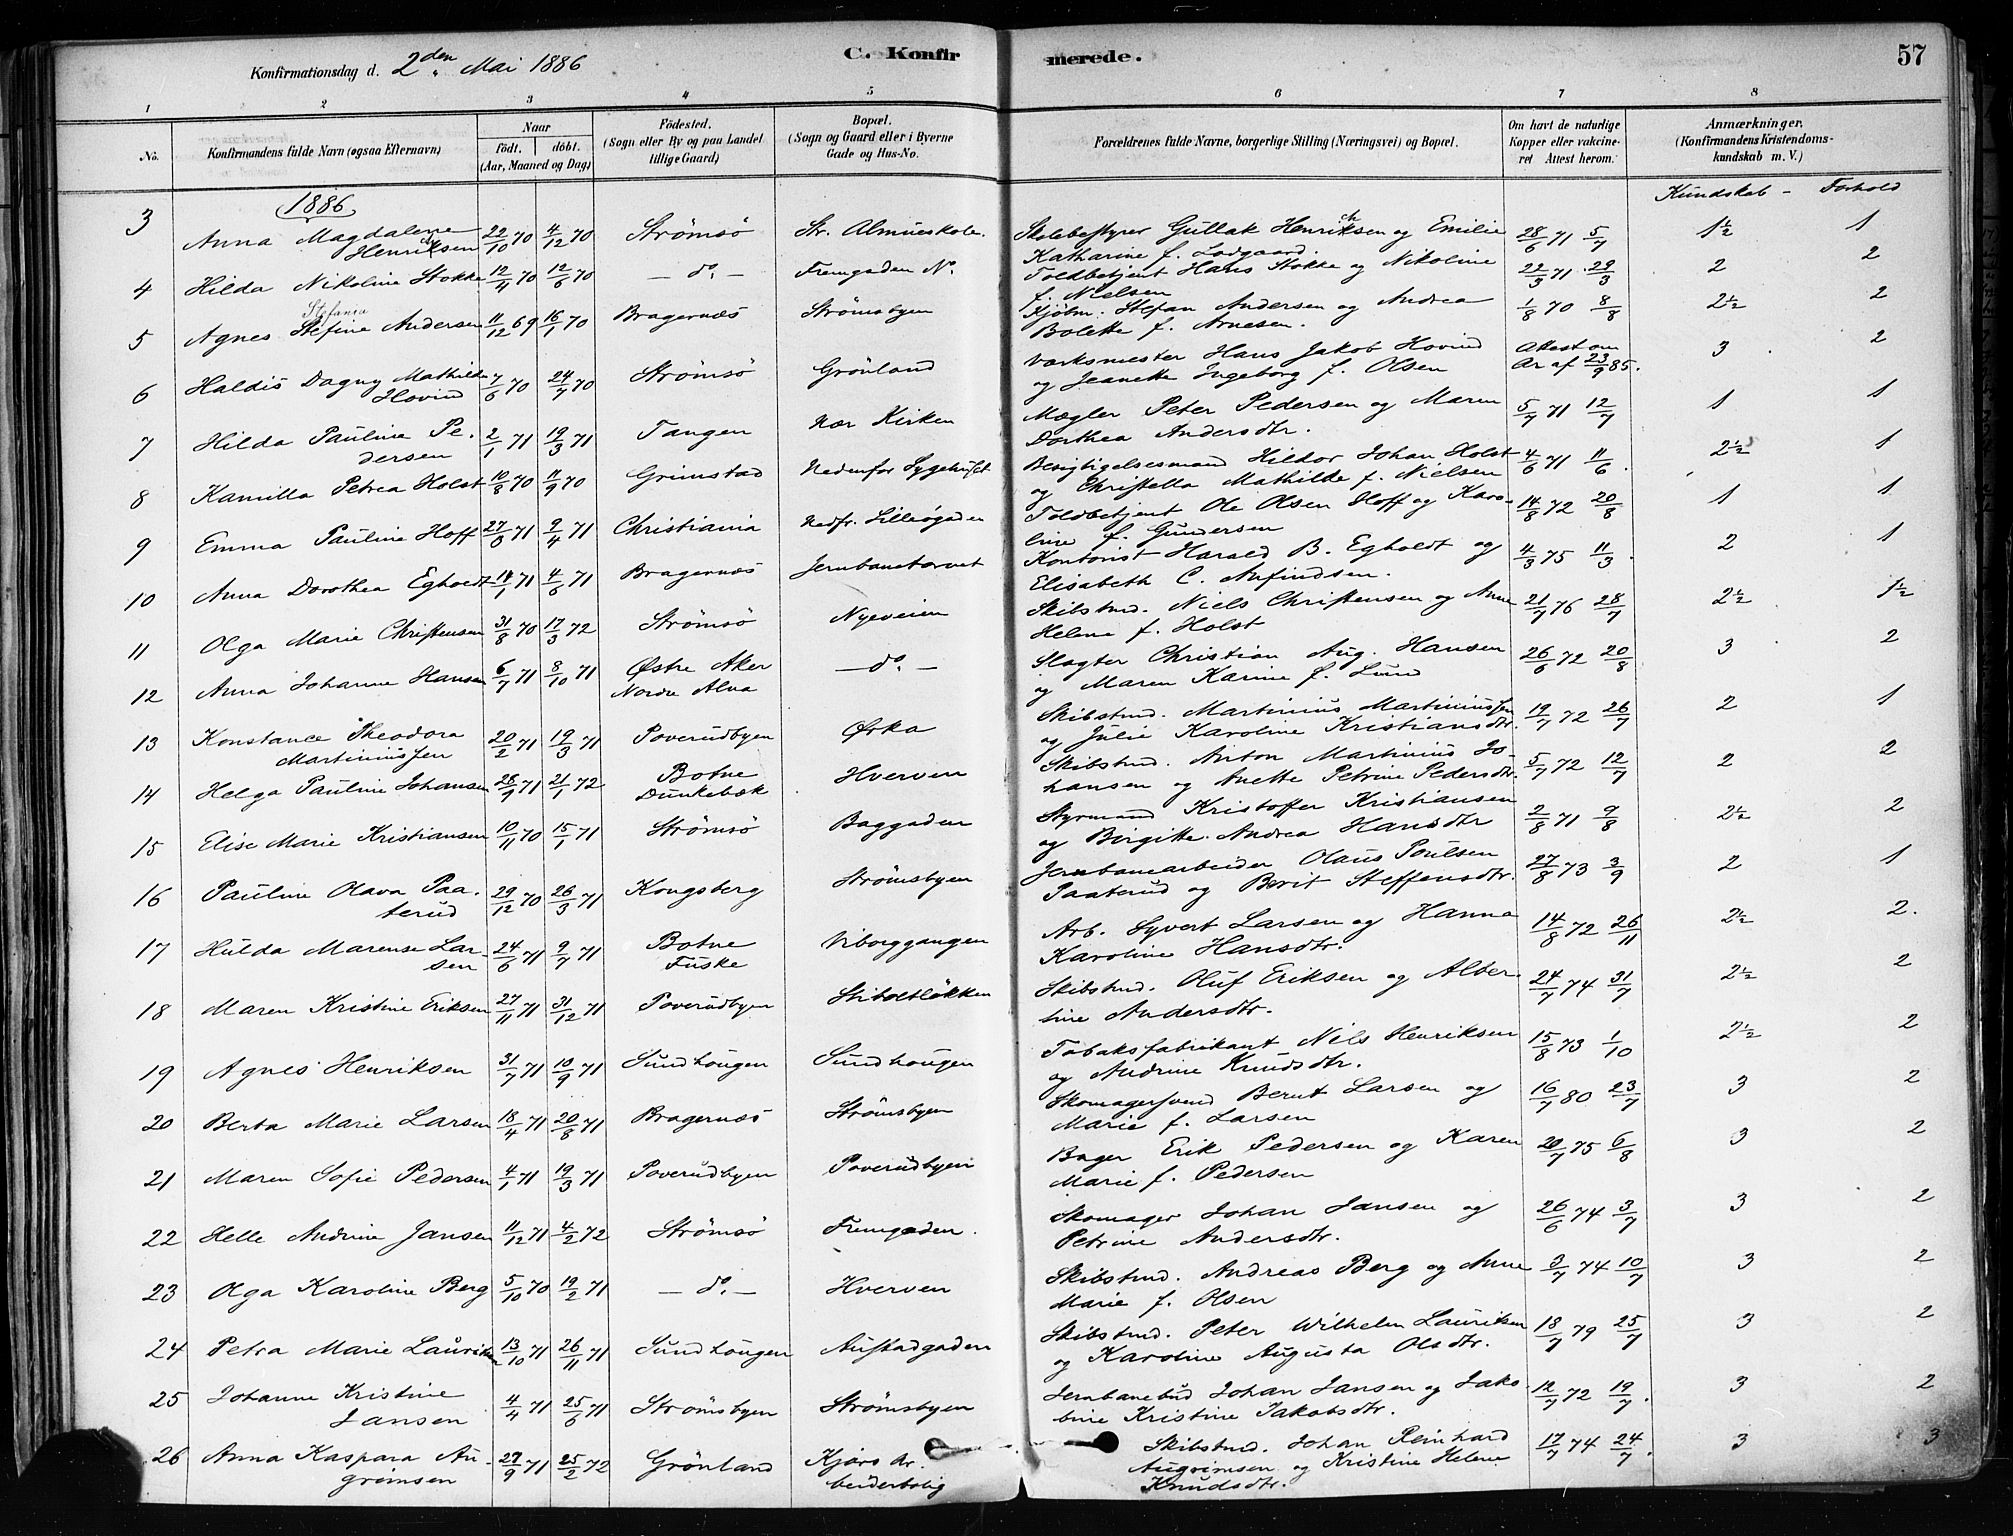 Konfirmationsdag d. 2den Mai 1886
C. Konfir merede.
57
1 2 3 4 5 6 7 8
No. Konfirmandens fulde Navn (ogsaa Efternavn) Naar Födt. döbt. (Aar, Maaned og Dag) Födested. (Sogn eller By og paa Landet tillige Gaard) Bopæl. (Sogn og Gaard eller i Byerne Gade og Hus-No. Forældrenes fulde Navne, borgerlige Stilling (Næringsvei) og Bopæl. Om havt de naturlige Kopper eller vakcineret Attest herom. Anmærkninger. (Konfirmandens Kristendomskundskab m. V.)
1886 Kundskab - Forhold
3 Anna Magdalene Henriksen 22/10 70 4/12 70 Strömsö Str. Almueskole. Skolebestyrer Gullak Henriksen og Emilie Katharine f. Lodgaard 28/6 71 5/7 1½ 1
4 Hilda Nikoline Stokke 12/4 70 12/6 70 - do. - Fremgaden No. Toldbetjent Hans Stokke og Nikoline f. Nielsen 22/3 71 29/3 2 2
5 Agnes Stefine Stefania Andersen 11/12 69 16/1 70 Bragernæs Strömsbyen Kjöbm. Stefan Andersen og Andrea Bolette f. Arnesen. 1/8 70 8/8 2½ 2
6 Haldis Dagny Mathilde Hovind 7/6 70 24/7 70 Strömsö Grönland Værksmester Hans Jakob Hovind og Jeanette Ingeborg f. Olsen Attest om Ar af 23/9 85. 3 2
7 Hilda Pauline Pedersen 2/1 71 19/3 71 Tangen Nær Kirken Mægler Peter Pedersen og Maren Dorthea Andersdtr. 5/7 71 12/7 1 1
8 Kamilla Petrea Holst 10/8 70 11/9 70 Grimstad Nedenfor Sygehuset Besigtigelsesmand Hildor Johan Holst og Christella Mathilde f. Nielsen 4/6 71 11/6 2½ 1
9 Emma Pauline Hoff 27/0 71 9/4 71 Christiania Nedfr. Lilleøgaden Toldbetjent Ole Olsen Hoff og Karoline f. Gundersen 14/8 72 20/8 1 1
10 Anna Dorothea Egholdt 14/1 71 4/6 71 Bragernæs Jernbanetorvet Kontorist Harald B. Egholdt og Elisabeth C. Anfindsen. 4/3 75 11/3 2 1
11 Olga Marie Christensen 31/8 70 17/3 72 Strömsö Nyeveien Skibstmd. Niels Christensen og Anne Helene f. Holst 21/7 76 28/7 2½ 1½
12 Anna Johanne Hansen 6/7 71 8/10 71 Østre Aker Nordre Alna - do. - Slagter Christian Aug. Hansen og Maren Karine f. Lund 26/6 72 20/8 3 2
13 Konstance Theodora Martiniussen 20/2 71 19/3 71 Poverudbyen Ørka Skibstmd. Martinius Martiniussen og Julie Karoline Kristiansdtr. 19/7 72 26/7 2 1
14 Helga Pauline Johansen 28/9 71 21/1 72 Botne Dunkebæk Hverven Skibstmd. Anton Martinius Johansen og Anette Petrine Pedersdtr. 5/7 72 12/7 2 2
15 Elise Marie Kristiansen 10/11 70 15/1 71 Strömsö Baggaden Styrmand Kristoffer Kristiansen og Birgitte Andrea Hansdtr 2/8 71 9/8 2½ 2
16 Pauline Olava Paaterud 29/12 70 26/3 71 Kongsberg Strömsbyen Jernbanearbeider Olaus Poulsen Paaterud og Berit Steffensdtr. 27/8 73 3/9 2 1
17 Hulda Marense Larsen 24/6 71 9/7 71 Botne Fuske Viborggangen Arb. Syvert Larsen og Hanna Karoline Hansdtr. 14/8 72 26/11 2½ 2.
18 Maren Kristine Eriksen 27/11 71 31/12 71 Poverudbyen Stiboltlökken Skibstmd. Oluf Eriksen og Albertine Andersdtr. 24/7 74 31/7 2½ 2
19 Agnes Henriksen 31/7 71 10/9 71 Sundhougen Sundhougen Tobaksfabrikant Nils Henriksen og Andrine Knudsdtr. 15/8 73 1/10 2½ 2
20 Berta Marie Larsen 18/4 71 20/8 71 Bragernæs Strömsbyen Skomagersvend Bernt Larsen og Marie f. Larsen 16/7 80 23/7 3 2
21 Maren Sofie Pedersen 4/1 71 19/3 71 Poverudbyen Poverudbyen Bager Erik Pedersen og Karen Marie f. Pedersen 20/7 75 6/8 3 2
22 Helle Andrine Jansen 11/12 71 4/2 72 Strömsö Fremgaden. Skomager Johan Jansen og Petrine Andersdtr. 26/6 74 3/7 3 2
23 Olga Karoline Berg 5/10 70 19/2 71 - do. - Hverven Skibstmd. Andreas Berg og Anne Marie f. Olsen 3/7 74 10/7 3 2
24 Petra Marie Lauritsen 13/10 71 26/11 71 Sundhougen Austadgaden Skibstmd. Peter Wilhelm Lauritsen og Karoline Augusta Olsdtr. 18/7 79 25/7 3 2
25 Johanne Kristine Jansen 4/4 71 25/6 71 Strömsbyen Strömsbyen Jernbanebud Johan Jansen og Jakobine Kristine Jakobsdtr. 12/7 72 19/7. 3 2
26 Anna Kaspara Augrimsen 27/9 71 25/2 72 Grönland Kjærs Arbeiderbolig Skibstmd. Johan Reinhard Augrimsen og Kristine Helene Knudsdtr. 17/7 74 24/7. 3 3